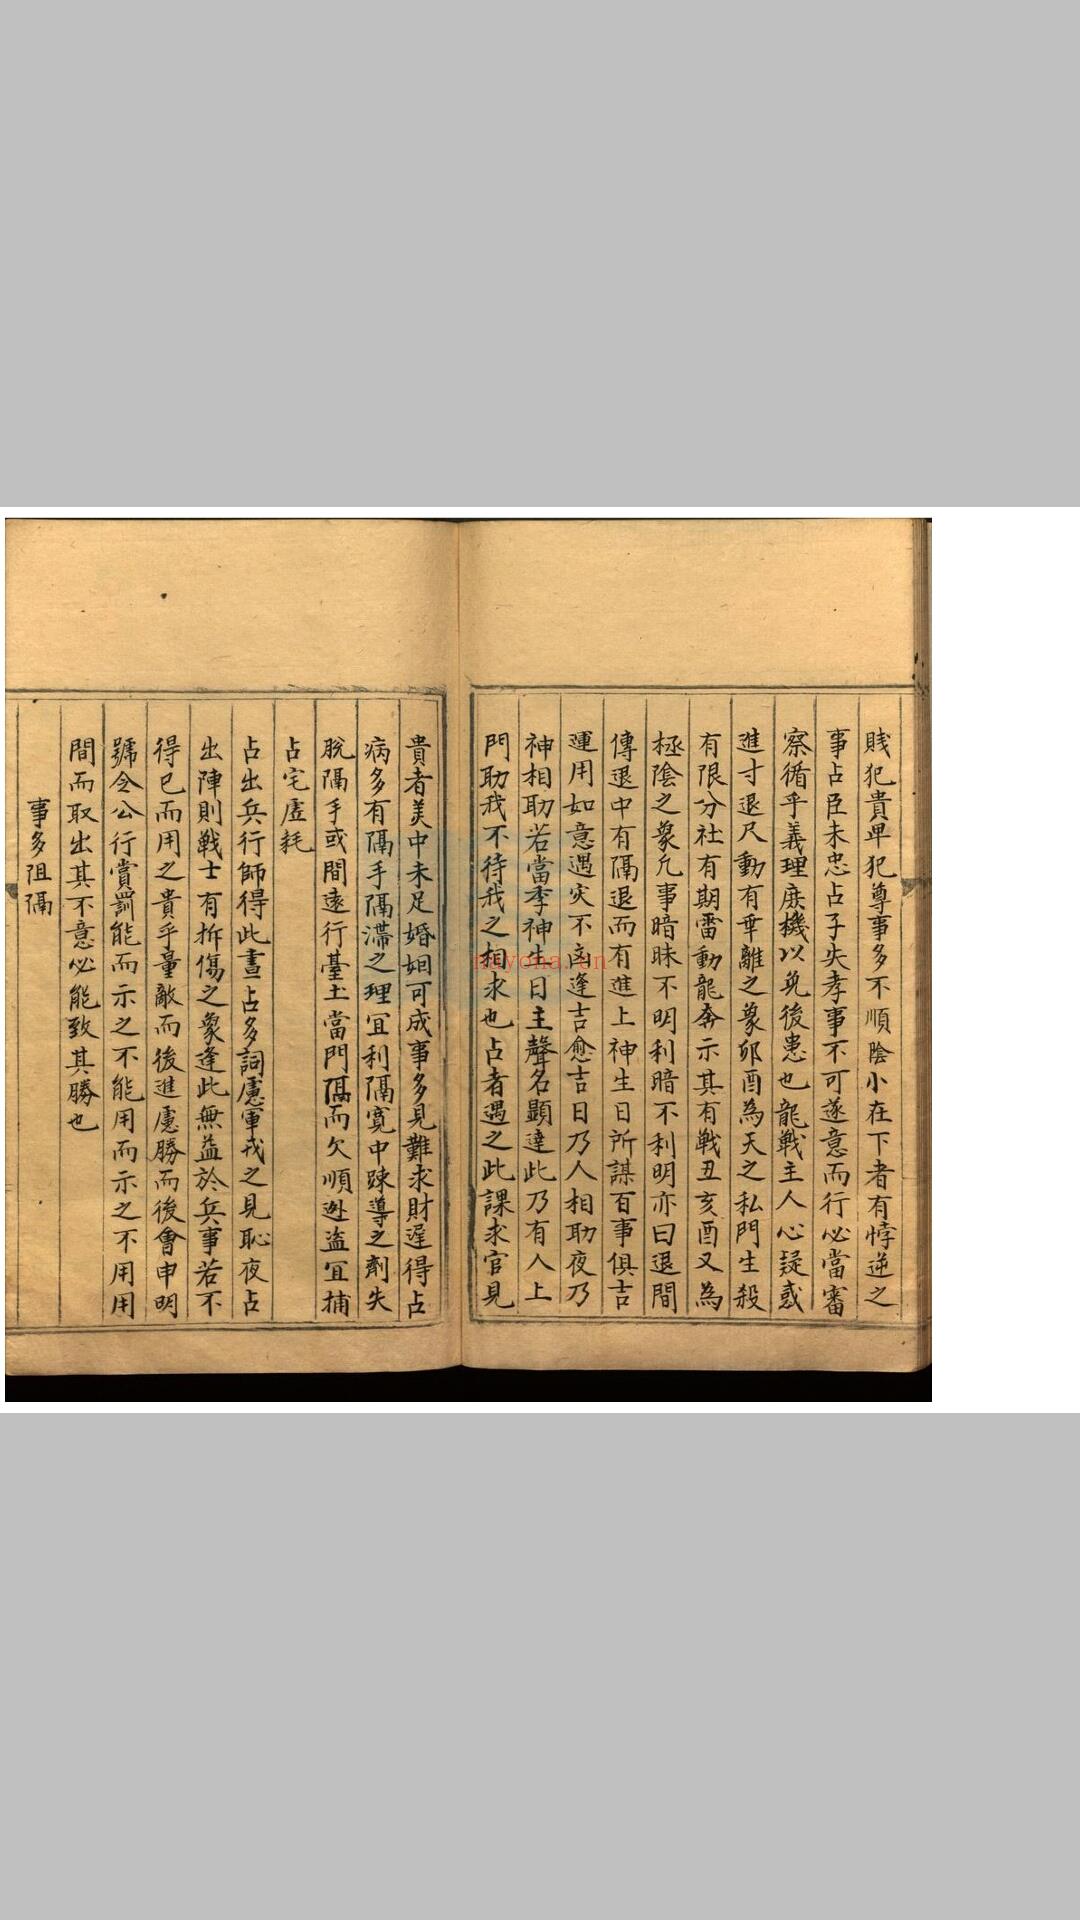 賤犯貴卑犯尊事多不順陰小在下者有悖逆之
事占臣未忠占子失孝事不可遂意而行必當審
察循乎義理庶機以免後患也龍戰主人心疑惑
進寸退尺動有乖離之象卯酉為天之私門生殺
有限分社有期雷動龍奔示其有戰丑亥酉又為
極陰之象凡事暗昧不明利暗不利明亦曰退間
傳退中有隔退而有進上神生日所謀百事俱吉
運用如意遇灾不凶逢吉愈吉日乃人相助夜乃
神相助若當季神生日主聲名顯達此乃有人上
門助我不待我之相求也占者遇之此課求官見
貴者美中未足婚姻可成事多見難求財遲得占
病多有隔手隔滯之理宜利隔寬中踈導之劑失
脫隔手或間遠行臺土當門隔而欠順逃盜宜捕
占宅虛耗
占出兵行師得此晝占多詞慮軍戎之見恥夜占
出陣則戰士有折傷之象逢此無益於兵事若不
得已而用之貴乎量敵而後進慮勝而後會申明
號令公行賞罰能而示之不能用而示之不用用
間而取出其不意必能致其勝也
事多阻隔
nayona.cn